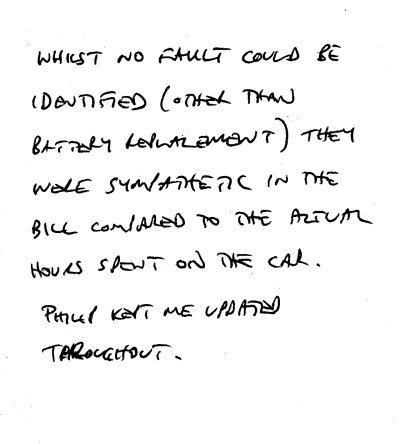 WHILST NO FAULT COULD BE
IDENTIFIED (OTHER THAN
BATTERY REPLACEMENT) THEY
WERE SYMPATHETIC IN THE
BILL COMPARED TO THE ACTUAL
HOURS SPENT ON THE CAR.
PHILIP KEPT ME UPDATED
THROUGHOUT.